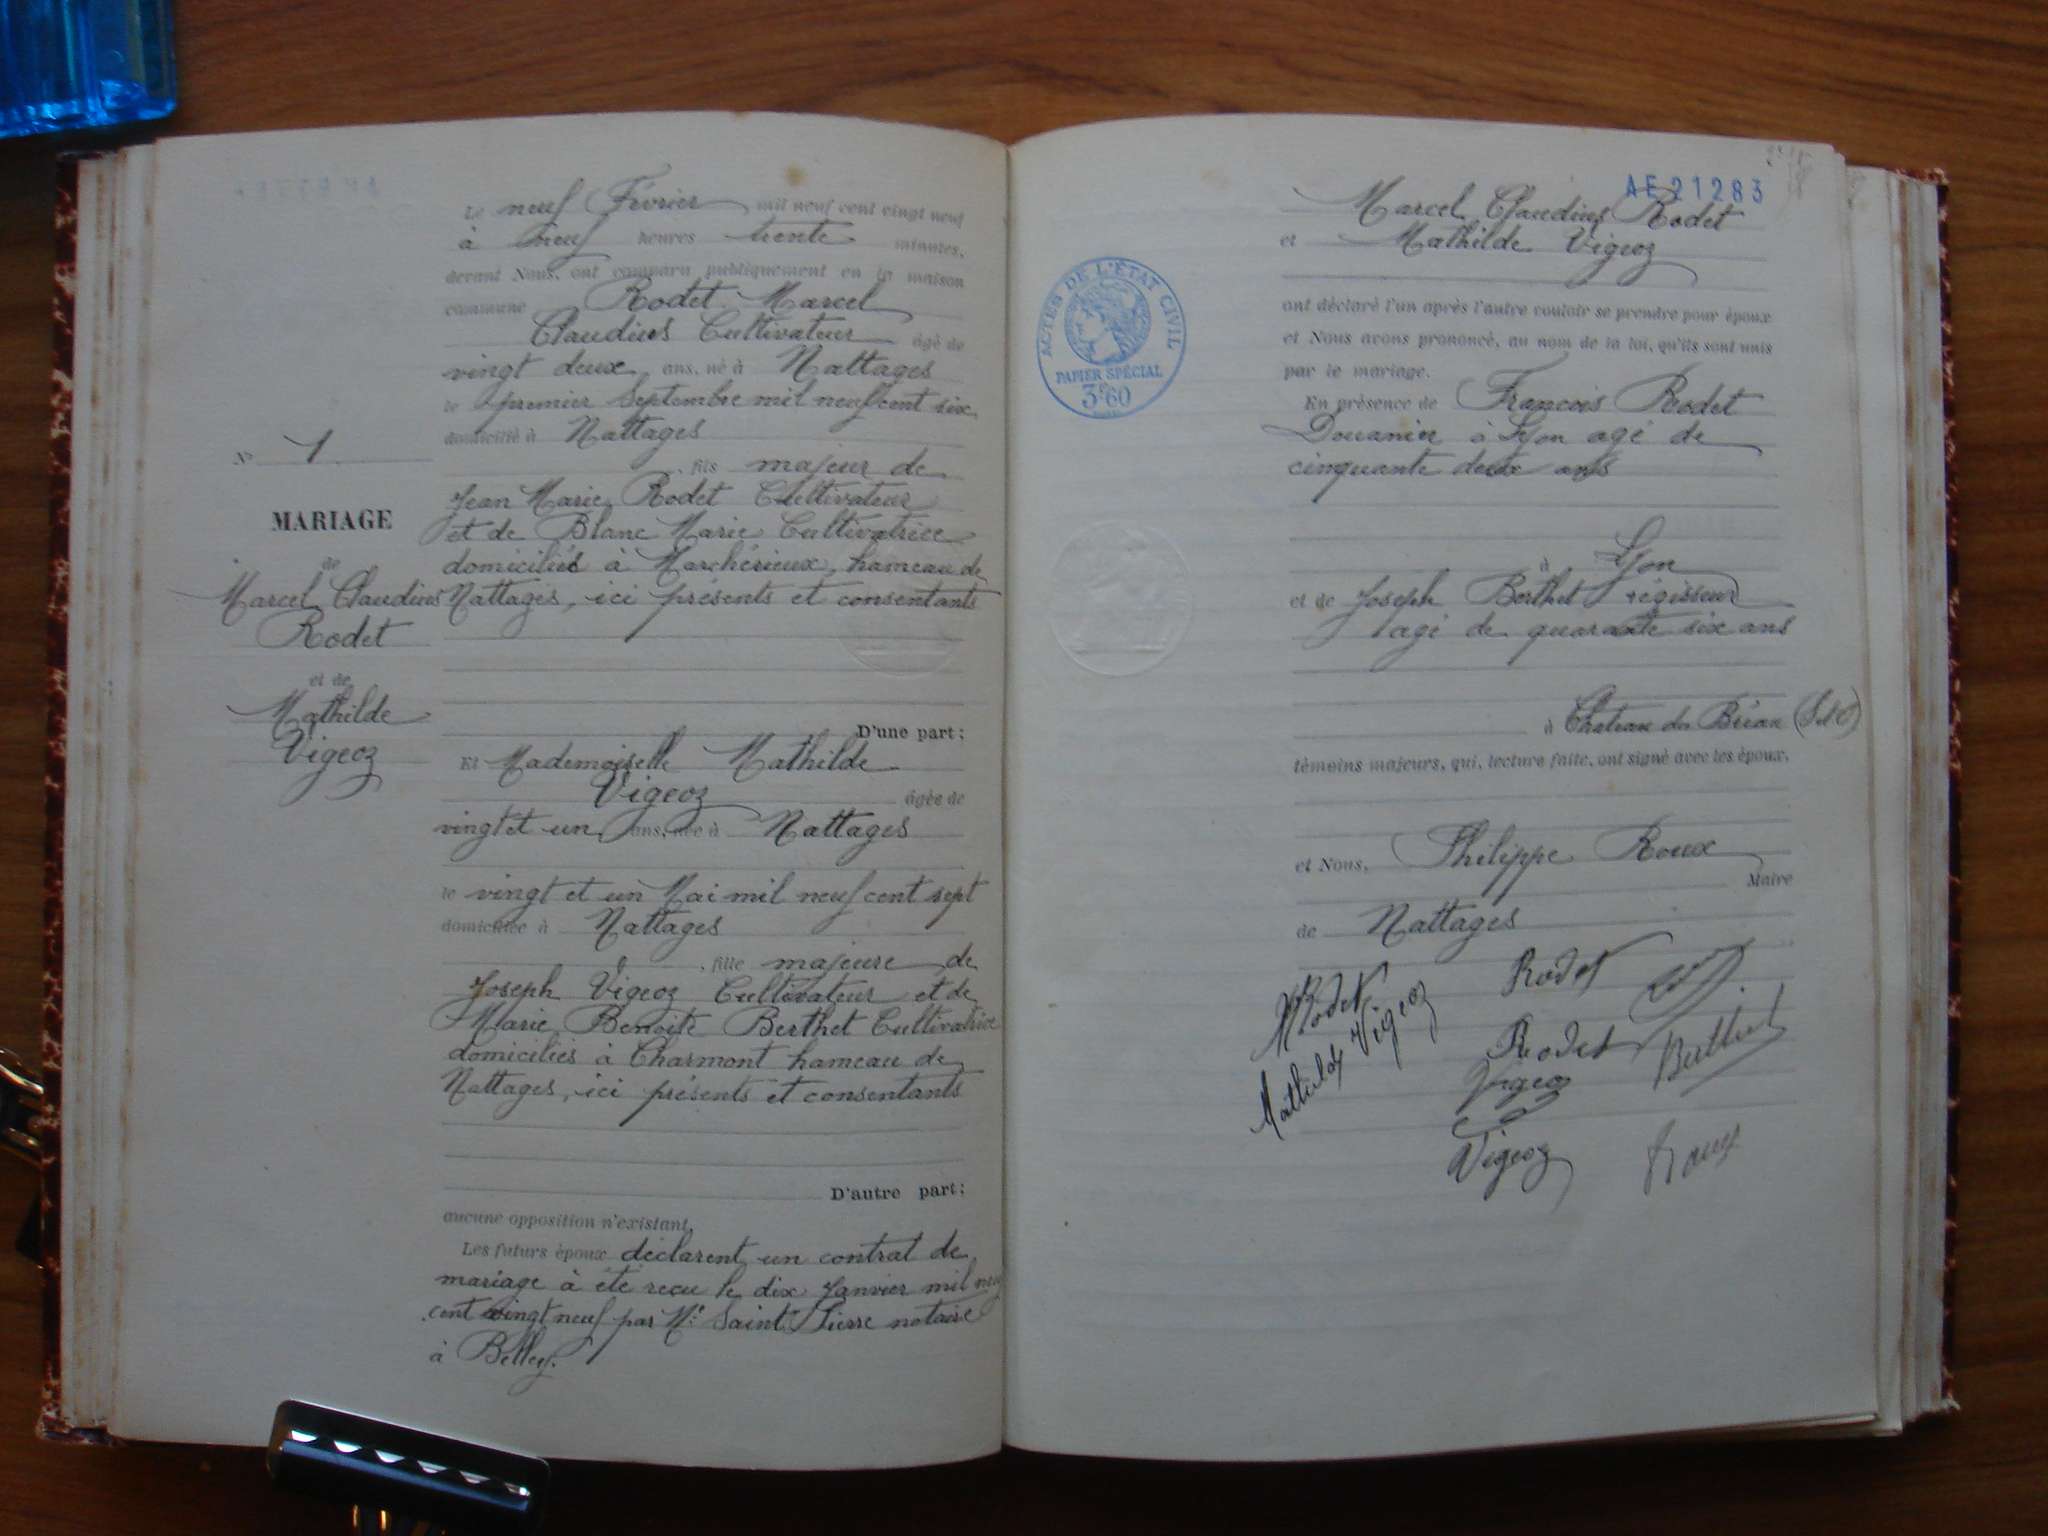 Le neuf Février mil neuf cent vingt neuf
à neuf heures trente minutes,
devant Nous, ont comparu publiquement en la maison
commune Rodet Marcel
Claudius Cultivateur âgé de
vingt deux ans, né à Nattages
le premier Septembre mil neuf cent six
domicilié à Nattages
fils majeur de
Jean Marie Rodet Cultivateur
et de Blanc Marie Cultivatrice
domiciliés à Marchérieux, hameau de
Nattages, ici présents et consentants
N° 1
MARIAGE
de
Marcel Claudius
Rodet
et de
Mathilde
Vigeoz
D'une part;
Et Mademoiselle Mathilde
Vigeoz âgée de
vingt et un ans, née à Nattages
le vingt et un Mai mil neuf cent sept
domiciliée à Nattages
, fille majeure de
Joseph Vigeoz Cultivateur et de
Marie Benoite Berthet Cultivatrice
domiciliés à Charmont hameau de
Nattages, ici présents et consentants
D'autre part;
aucune opposition n'existant,
Les futurs époux déclarent un contrat de
mariage à été reçu le dix Janvier mil neuf
cent vingt neuf par Me Saint Pierre notaire
à Belley.
AE21283
Marcel Claudius Rodet
et Mathilde Vigeoz
ACTES DE L'ÉTAT CIVIL
PAPIER SPÉCIAL
3F60
ont déclaré l'un après l'autre vouloir se prendre pour époux
et Nous avons prononcé, au nom de la loi, qu'ils sont unis
par le mariage.
En présence de François Rodet
Douanier à Lyon agé de
cinquante deux ans
à Lyon
et de Joseph Berthet régisseur
agé de quarante six ans
à Chateau du Brian
témoins majeurs, qui, lecture faite, ont signé avec les époux,
et Nous, Philippe Roux
Maire
de Nattages
MRodet
Mathilde Vigeoz
Rodet
Rodet
Berthet
Vigeoz
Vigeoz
Roux